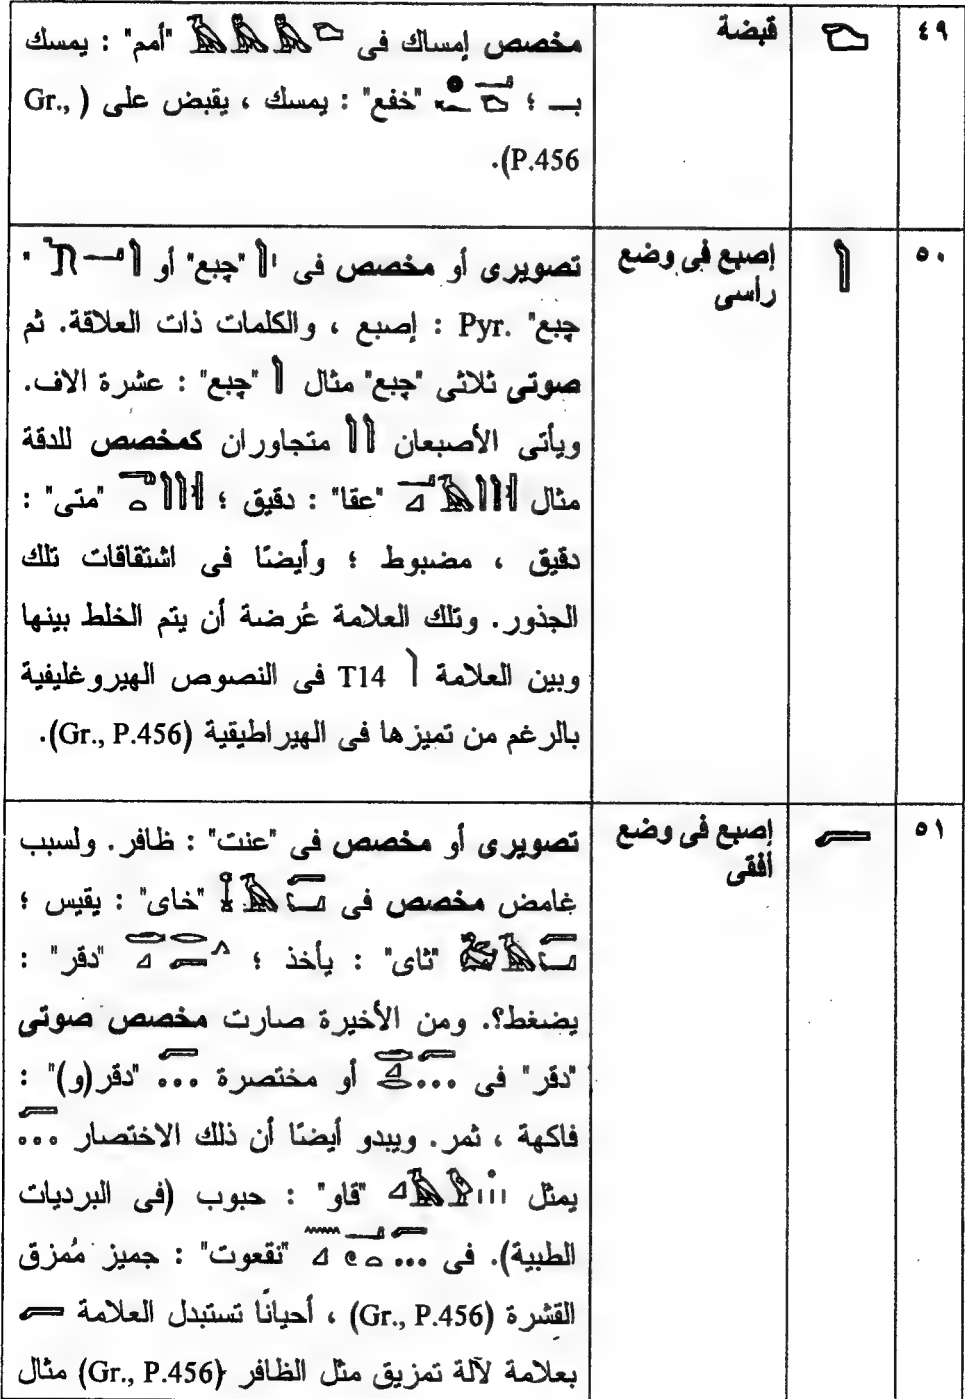 ٤٩ قبضة مخصص إمساك فى "أمم" : يمسك
بـ ؛ "خفع" : يمسك ، يقبض على ( Gr.,
P.456).
٥٠ إصبع فى وضع تصويرى أو مخصص فى "چبع" أو "
رأسى چبع" Pyr. : إصبع ، والكلمات ذات العلاقة. ثم
صوتى ثلاثى "چبع" مثال "چبع" : عشرة الاف.
ويأتى الأصبعان متجاوران كمخصص للدقة
مثال "عقا" : دقيق ؛ "متى" :
دقيق ، مضبوط ؛ وأيضًا فى اشتقاقات تلك
الجذور. وتلك العلامة عُرضة أن يتم الخلط بينها
وبين العلامة T14 فى النصوص الهيروغليفية
بالرغم من تميزها فى الهيراطيقية (Gr., P.456).
٥١ إصبع فى وضع تصويرى أو مخصص فى "عنت" : ظافر. ولسبب
أفقى غامض مخصص فى "خاى" : يقيس ؛
"ثاى" : يأخذ ؛ "دقر" :
يضغط؟. ومن الأخيرة صارت مخصص صوتى
"دقر" فى أو مختصرة "دقر(و)" :
فاكهة ، ثمر. ويبدو أيضًا أن ذلك الاختصار
يمثل "قاو" : حبوب (فى البرديات
الطبية). فى "نقعوت" : جميز مُمزق
القشرة (Gr., P.456) ، أحيانًا تستبدل العلامة
بعلامة لآلة تمزيق مثل الظافر (Gr., P.456) مثال